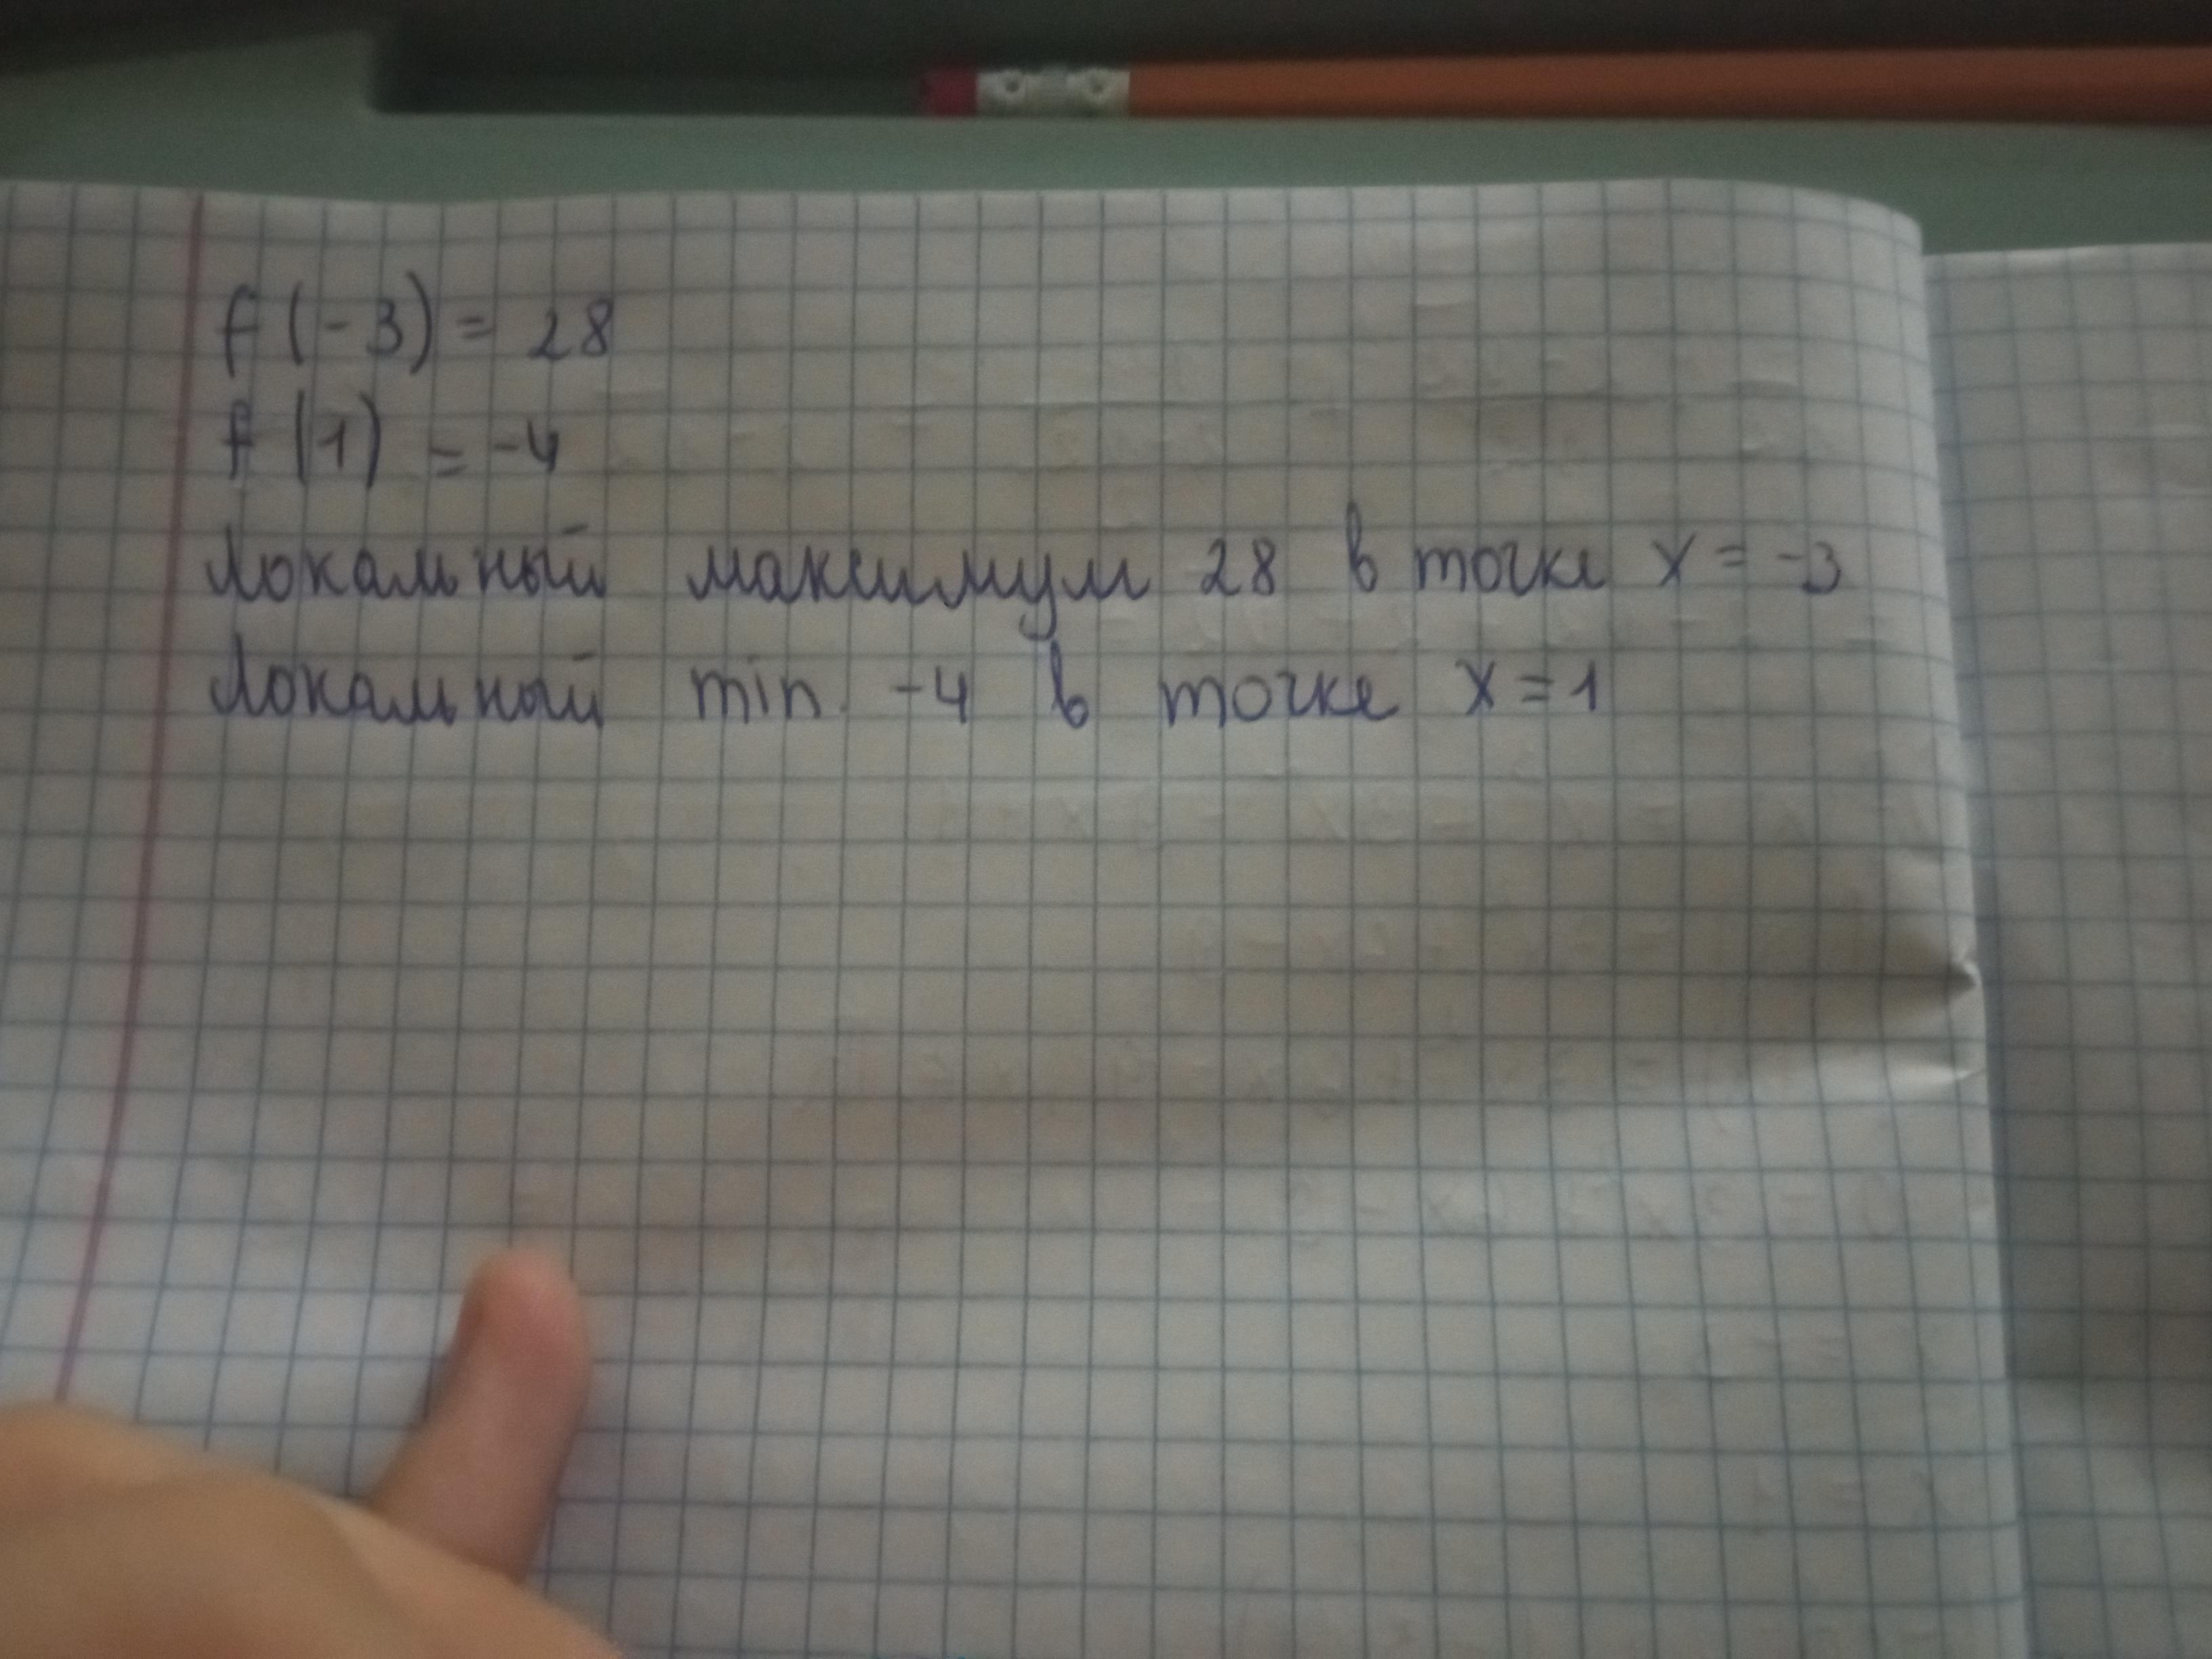 f(-3) = 28
f(1) = -4
Локальный максимум 28 в точке x = -3
Локальный min -4 в точке x = 1